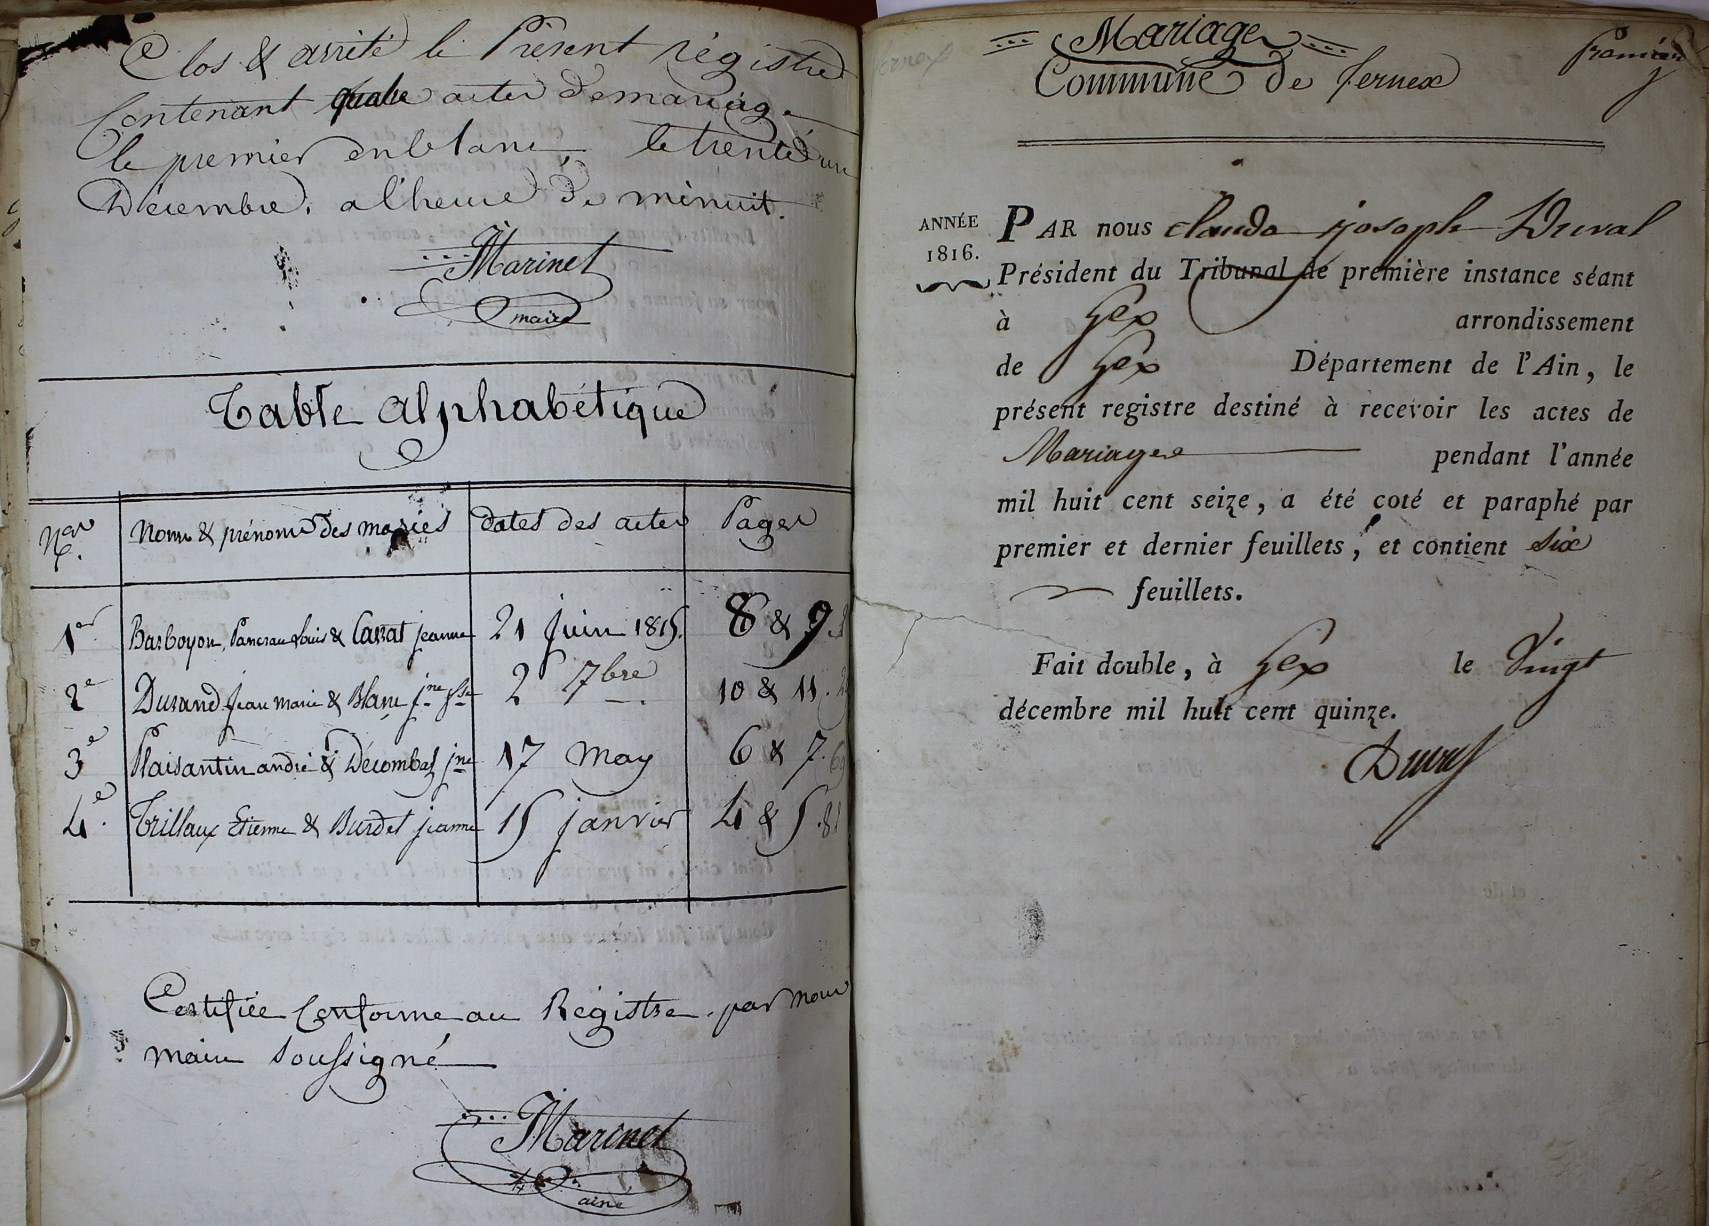 Clos & arrêté le Présent régistre
Contenant quatre actes de mariage
le premier en blanc, le trente un
Décembre. a l'heure de minuit.
Marinet
maire
Table alphabétique
Nos
Noms & prénoms des mariés
dates des actes
Pages
1er
Barboyon, Pancrau Louis & Carrat jeanne
21 Juin 1815.
8 & 9
2e
Durand Jean Marie & Blanc jne
2 7bre
10 & 11.
3e
Plaisantin andré & Décombaz jne
17 may
6 & 7.
4e.
Trillaux Etienne & Burdet jeanne
15 janvier
4 & 5.
Certifiée Conforme au Régistre par nous
maire soussigné
Marinet
ainé
Mariages
Premier
Commune de fernex
ANNÉE
1816.
PAR nous claude joseph Duval
Président du Tribunal de première instance séant
à Gex arrondissement
de Gex Département de l'Ain, le
présent registre destiné à recevoir les actes de
Mariages pendant l'année
mil huit cent seize, a été coté et paraphé par
premier et dernier feuillets, et contient six
feuillets.
Fait double, à Gex le Vingt
décembre mil huit cent quinze.
Duval